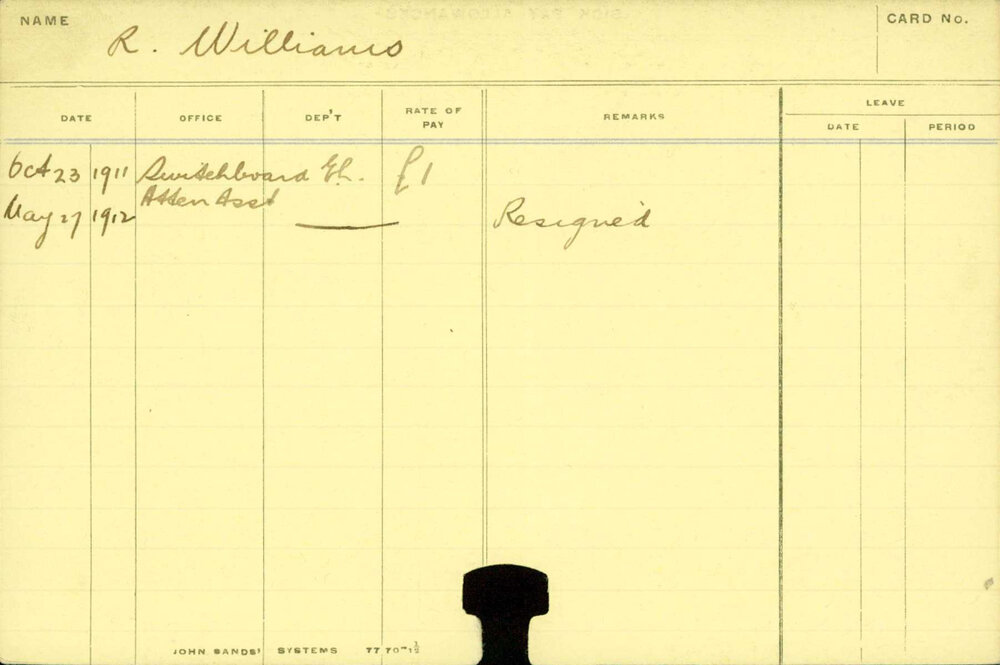 NAME
R. Williams
CARD No.
DATE OFFICE DEP'T RATE OF PAY REMARKS LEAVE
DATE PERIOD
Oct 23 1911 Switchboard El. £1
Atten Asst
May 27 1912 Resigned
JOHN SANDS' SYSTEMS